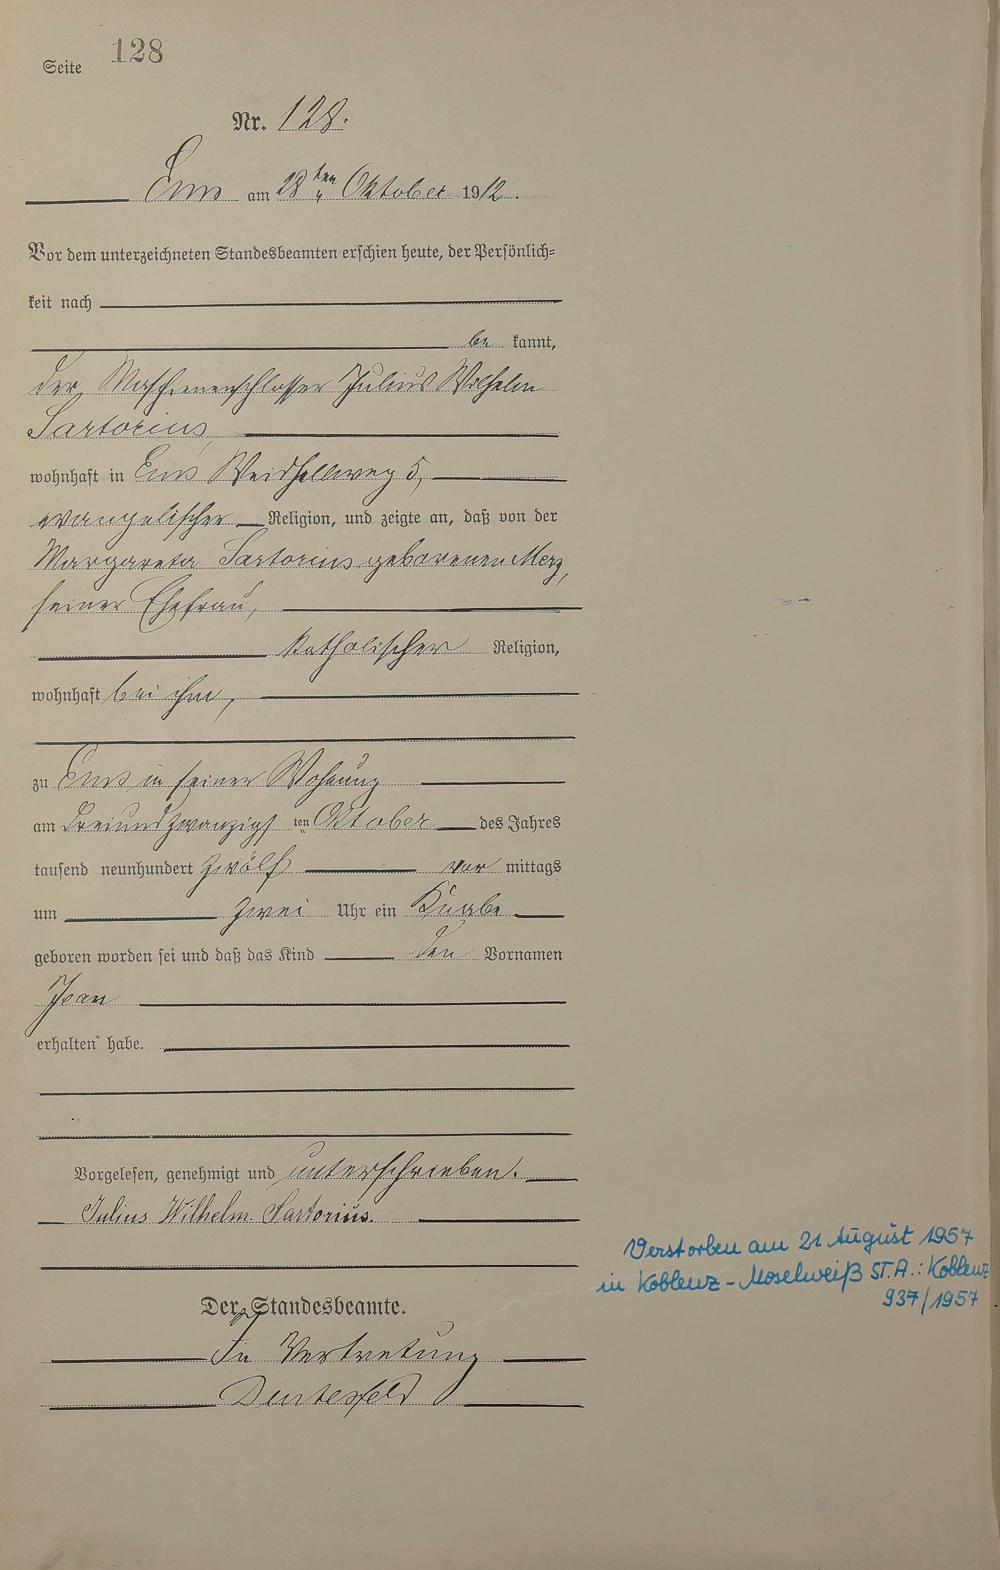 Seite 128
Nr. 128.
Ems am 28ten Oktober 1912.
Vor dem unterzeichneten Standesbeamten erschien heute, der Persönlich=
keit nach
be kannt,
der Maschienenschlosser Julius Wilhelm
Sartorius,
wohnhaft in Ems 5,
evangelischer Religion, und zeigte an, daß von der
Margareta Sartorius geborenen Merz,
seiner Ehefrau,
katholischer Religion,
wohnhaft bei ihm,
zu Ems in seiner Wohnung
am dreiundzwanzigsten Oktober des Jahres
tausend neunhundert zwölf vor mittags
um zwei Uhr ein Knabe
geboren worden sei und daß das Kind den Vornamen
Jean
erhalten habe.
Vorgelesen, genehmigt und unterschrieben.
Julius Wilhelm Sartorius.
Verstorben am 21 August 1957
in Koblenz-Moselweiß ST.A.: Koblenz
937/1957
Der Standesbeamte.
In Vertretung